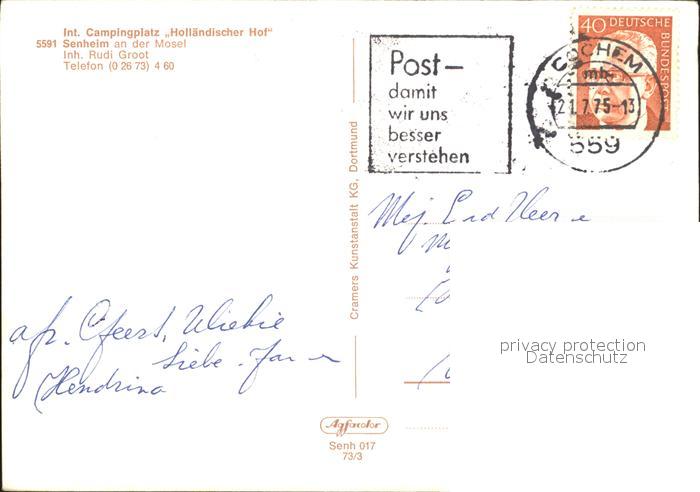 Int. Campingplatz „Holländischer Hof“
5591 Senheim an der Mosel
Inh. Rudi Groot
Telefon (0 26 73) 4 60
Post–
damit
wir uns
besser
verstehen
40 DEUTSCHE
BUNDESPOST
COCHEM
mb
21.7.75-13
559
Cramers Kunstanstalt KG, Dortmund
afz. Geert, Wiebie
Siebe. Jan
Hendrina
privacy protection
Datenschutz
Agfacolor
Senh 017
73/3